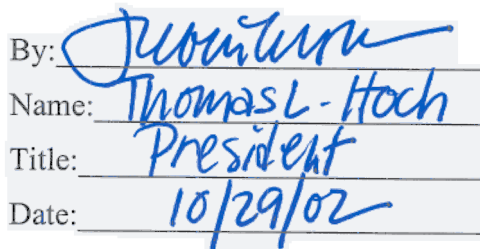 By:
Name: Thomas L. Hoch
Title: President
Date: 10/29/02